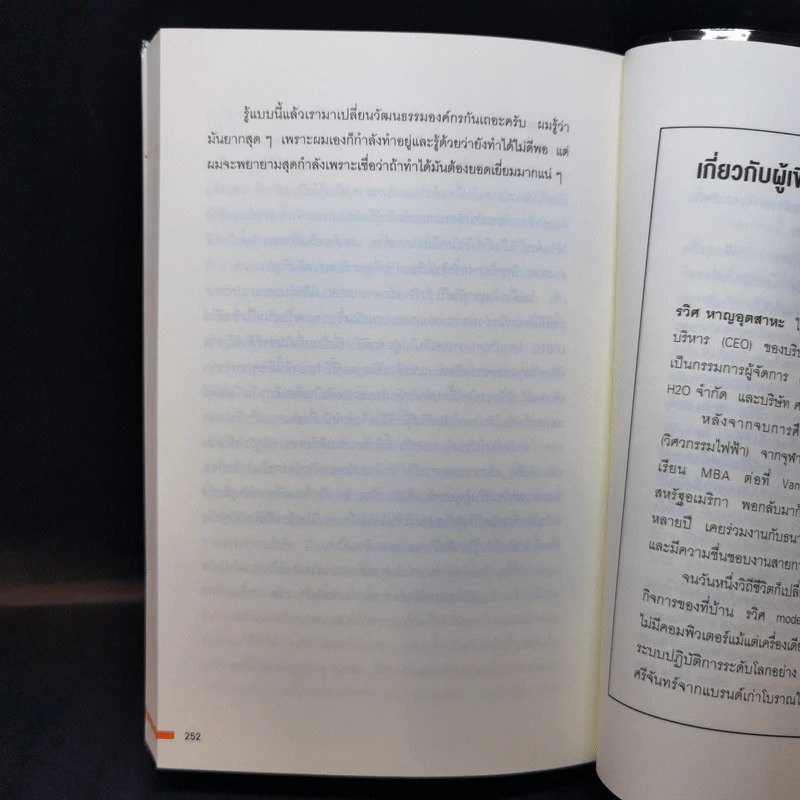 รู้แบบนี้แล้วเรามาเปลี่ยนวัฒนธรรมองค์กรกันเถอะครับ ผมรู้ว่า
มันยากสุด ๆ เพราะผมเองก็กำลังทำอยู่และรู้ด้วยว่ายังทำได้ไม่ดีพอ แต่
ผมจะพยายามสุดกำลังเพราะเชื่อว่าถ้าทำได้มันต้องยอดเยี่ยมมากแน่ ๆ
252
เกี่ยวกับผู้เขี
รวิศ หาญอุตสาหะ
บริหาร (CEO) ของบริษั
เป็นกรรมการผู้จัดการ
H2O จำกัด และบริษัท ศ
หลังจากจบการศึ
(วิศวกรรมไฟฟ้า) จากจุฬา
เรียน MBA ต่อที่ Van
สหรัฐอเมริกา พอกลับมาก็
หลายปี เคยร่วมงานกับธนา
และมีความชื่นชอบงานสายกา
จนวันหนึ่งวิถีชีวิตก็เปลี่
กิจการของที่บ้าน รวิศ mode
ไม่มีคอมพิวเตอร์แม้แต่เครื่องเดีย
ระบบปฏิบัติการระดับโลกอย่าง
ศรีจันทร์จากแบรนด์เก่าโบราณใ